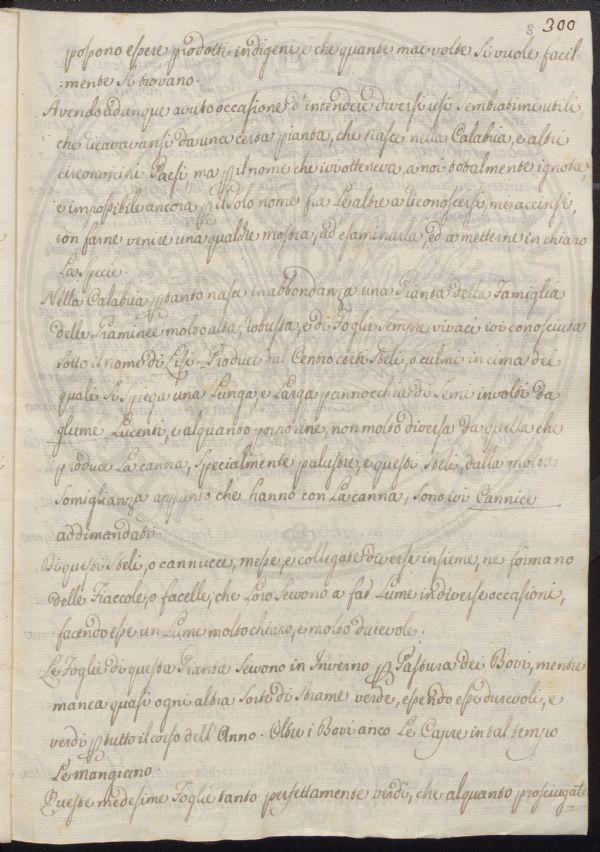 8 300
possono essere prodotti indigeni, e che quante mai volte si vuole facil-
mente si trovano.
Avendo adunque avuto occasione d'intendere diversi usi sembratimi utili,
che ricavavansi da una certa pianta, che nasce nella Calabria, e altri
circonvicini Paesi, ma per il nome che ivi otteneva, a noi totalmente ignota,
e impossibile ancora per il solo nome fra le altre a riconoscersi, me accinsi,
con farne venire una qualche mostra, ad esaminarla, ed a metterne in chiaro
la specie.
Nella Calabria per tanto nasce in abbondanza una Pianta della Famiglia
delle Graminee molto alta, robusta, e di Foglie sempre vivaci ivi conosciuta
sotto il nome di Lisi. Produce dal Centro certi steli, o culmi in cima dei
quali si spiega una lunga, e larga pannocchia di semi involti da
glume lucenti, e alquanto porporine, non molto diversa da quella che
produce la canna, specialmente palustre, e questi steli, dalla molta
somiglianza appunto che hanno con la canna, sono ivi Cannice
addimandati.
Di questi steli, o cannucce, messe, e collegate diverse insieme, ne formano
delle Fiaccole, o facelle, che loro servono a far lume in diverse occasioni,
facendo esse un lume molto chiaro, e molto durevole.
Le Foglie di questa Pianta servono in Inverno per Pastura dei Bovi, mentre
manca quasi ogni altra sorte di strame verde, essendo esse durevoli, e
verdi per tutto il corso dell'Anno. Oltre i Bovi anco le Capre in tal tempo
le mangiano.
Queste medesime Foglie tanto perfettamente verdi, che alquanto prosciugate